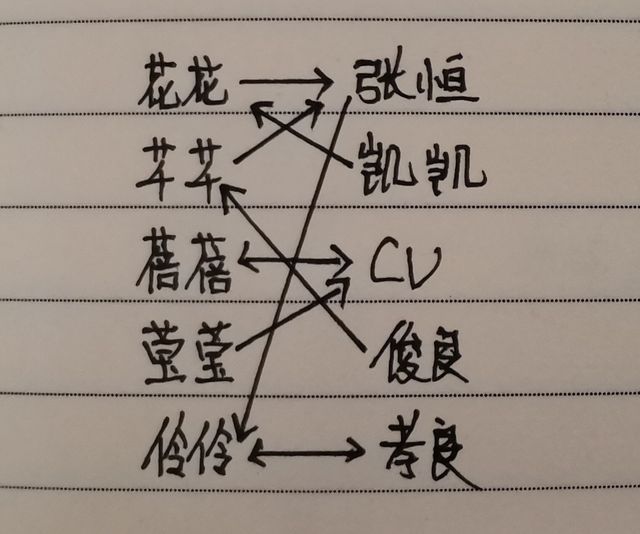 花花 张恒
芊芊 凯凯
蓓蓓 CV
莹莹 俊良
伶伶 孝良